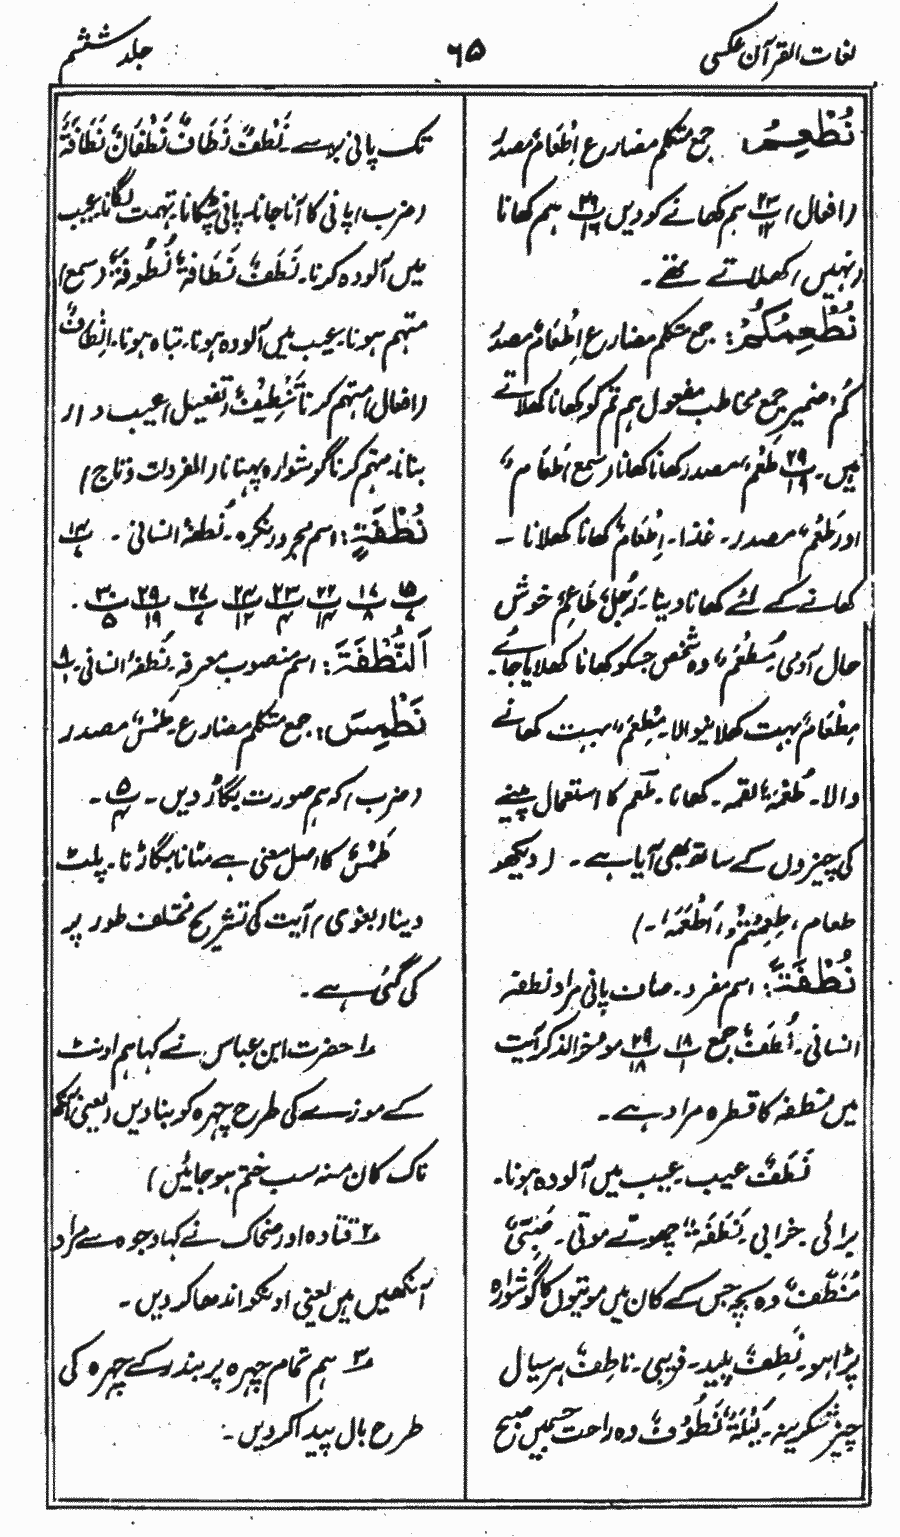 لغات القرآن عکسی
۶۵
جلد ششم
نُطْعِمُ: جمع متکلم مضارع اِطْعَامٌ مصدر
(افعال) ۲۳/۱۲ ہم کھانے کو دیں ۲۹/۱۶ ہم کھانا
(نہیں) کھلاتے تھے۔
نُطْعِمُکُمْ: جمع متکلم مضارع اِطْعَامٌ مصدر
کُمْ ضمیر جمع مخاطب مفعول ہم تم کو کھانا کھلاتے
ہیں۔ ۲۹/۱۹ طَعْمٌ مصدر کھانا کھانا (سمع) طَعَامٌ
اور طُعْمٌ مصدر۔ غذا۔ اِطْعَامٌ کھانا کھلانا۔
کھانے کے لئے کھانا دینا۔ رَجُلٌ طَاعِمٌ خوش
حال آدمی مُسْتَطْعِمٌ وہ شخص جسکو کھانا کھلایا جائے۔
مِطْعَامٌ بہت کھلانیوالا۔ مِطْعَمٌ بہت کھانے
والا۔ طُعْمَۃٌ لقمہ۔ کھانا۔ طَعِمَ کا استعمال پینے
کی چیزوں کے ساتھ بھی آیا ہے۔ (دیکھو
طعام، طَعِمْتُمْ، اَطْعَمَہٗ۔)
نُطْفَۃً: اسم مفرد۔ صاف پانی مراد نطفہ
انسانی۔ نُطَفٌ جمع ۱۸/۱ ۲۹/۱۸ موخر الذکر آیت
میں نطفہ کا قطرہ مراد ہے۔
نَطَفٌ عیب۔ عیب میں آلودہ ہونا۔
برائی۔ خرابی۔ نَطَفَۃٌ چھوٹے موتی۔ صَبِیٌّ
مُنَطَّفٌ وہ بچہ جس کے کان میں موتیوں کا گوشوارہ
پڑا ہو۔ نَطِفٌ پلید۔ فریبی۔ ناطِفٌ ہر سیال
چیز شکرینہ۔ لَیْلَۃٌ نَطُوْفٌ وہ رات جسمیں صبح
تک پانی برسے۔ نَطْفٌ نَطَافٌ نَطْفَانٌ نَطَافَۃٌ
(ضرب) پانی کا آنا جانا۔ پانی ٹپکانا۔ تہمت لگانا عیب
میں آلودہ کرنا۔ نَطَفٌ نَطَافَۃٌ نُطُوفَۃٌ (سمع)
متہم ہونا۔ عیب میں آلودہ ہونا۔ تباہ ہونا۔ اِنْطَافٌ
(افعال) متہم کرنا تَنْطِیْفٌ (تفعیل) عیب دار
بنانا۔ متہم کرنا گوشوارہ پہنانا (المفردات وتاج)
نُطْفَۃٍ: اسم مجرور نکرہ۔ نُطفۂ انسانی۔ ۱۴/۷
۱۵/۷ ۱۷/۸ ۲۲/۱۴ ۲۳/۴ ۲۴/۱۲ ۲۷/۷ ۲۹/۱۹ ۳۰/۵۔
اَلنُّطْفَۃَ: اسم منصوب معرفہ۔ نُطفۂ انسانی۔ ۹/۱
نَطْمِسَ: جمع متکلم مضارع۔ طَمْسٌ مصدر
(ضرب) کہ ہم صورت بگاڑ دیں۔ ۵/۴۔
طَمْسٌ کا اصل معنی ہے مٹانا بگاڑنا۔ پلٹ
دینا (بغوی) آیت کی تشریح مختلف طور پر
کی گئی ہے۔
۱؎ حضرت ابن عباس نے کہا ہم اونٹ
کے موزے کی طرح چہرہ کو بنا دیں (یعنی آنکھ
ناک کان منہ سب ختم ہو جائیں)
۲؎ قتادہ اور ضحاک نے کہا وجوہ سے مراد
آنکھیں ہیں یعنی اونکو اندھا کر دیں۔
۳؎ ہم تمام چہرہ پر بندر کے چہرہ کی
طرح بال پیدا کر دیں۔